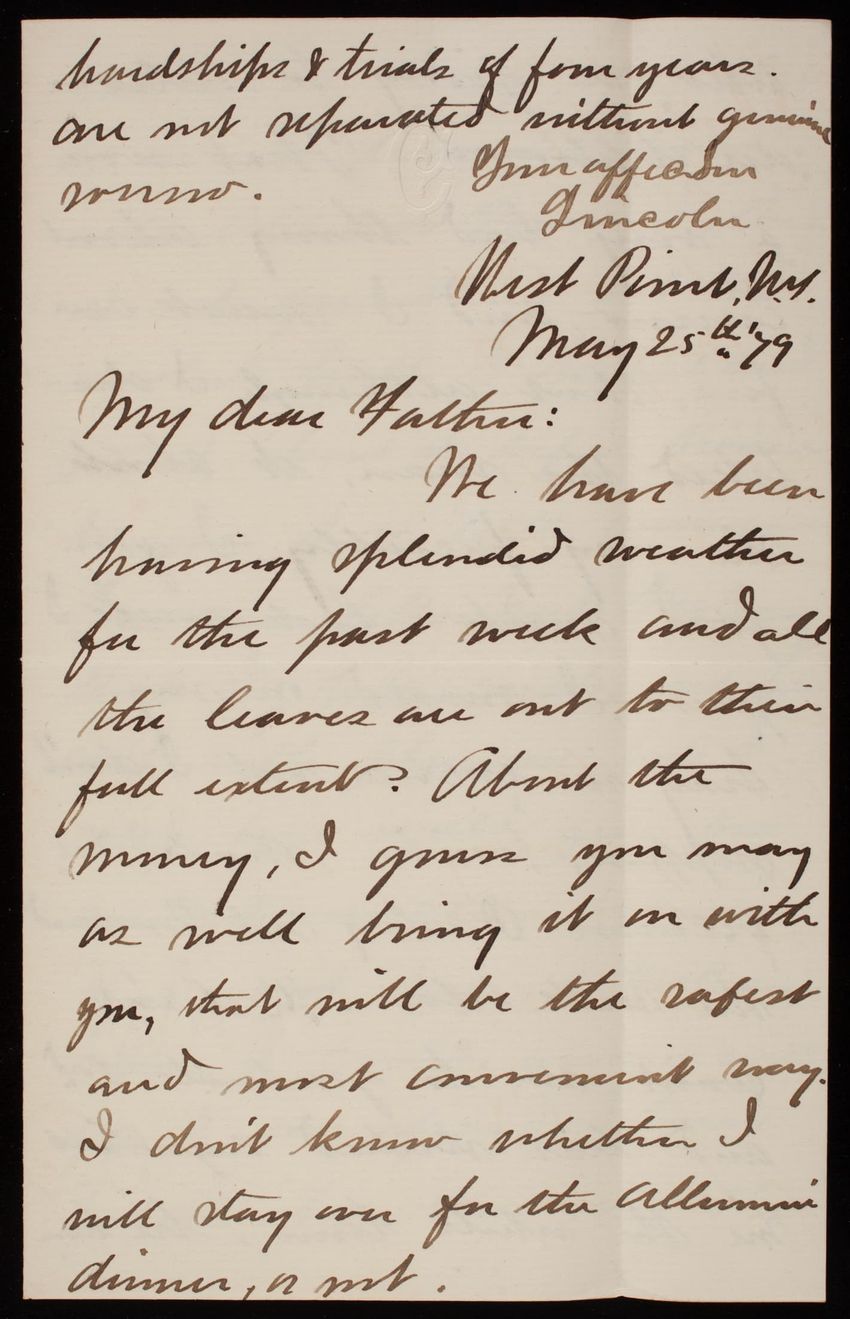 hardships & trials of four years.
are not separated without genuine
sorrow.
Your aff. son
Lincoln
West Point, N.Y.
May 25th '79
My dear Father:
We have been
having splendid weather
for the past week and all
the leaves are out to their
full extent. About the
money, I guess you may
as well bring it on with
you, that will be the safest
and most convenient way.
I don't know whether I
will stay over for the Allumni
dinner, or not.